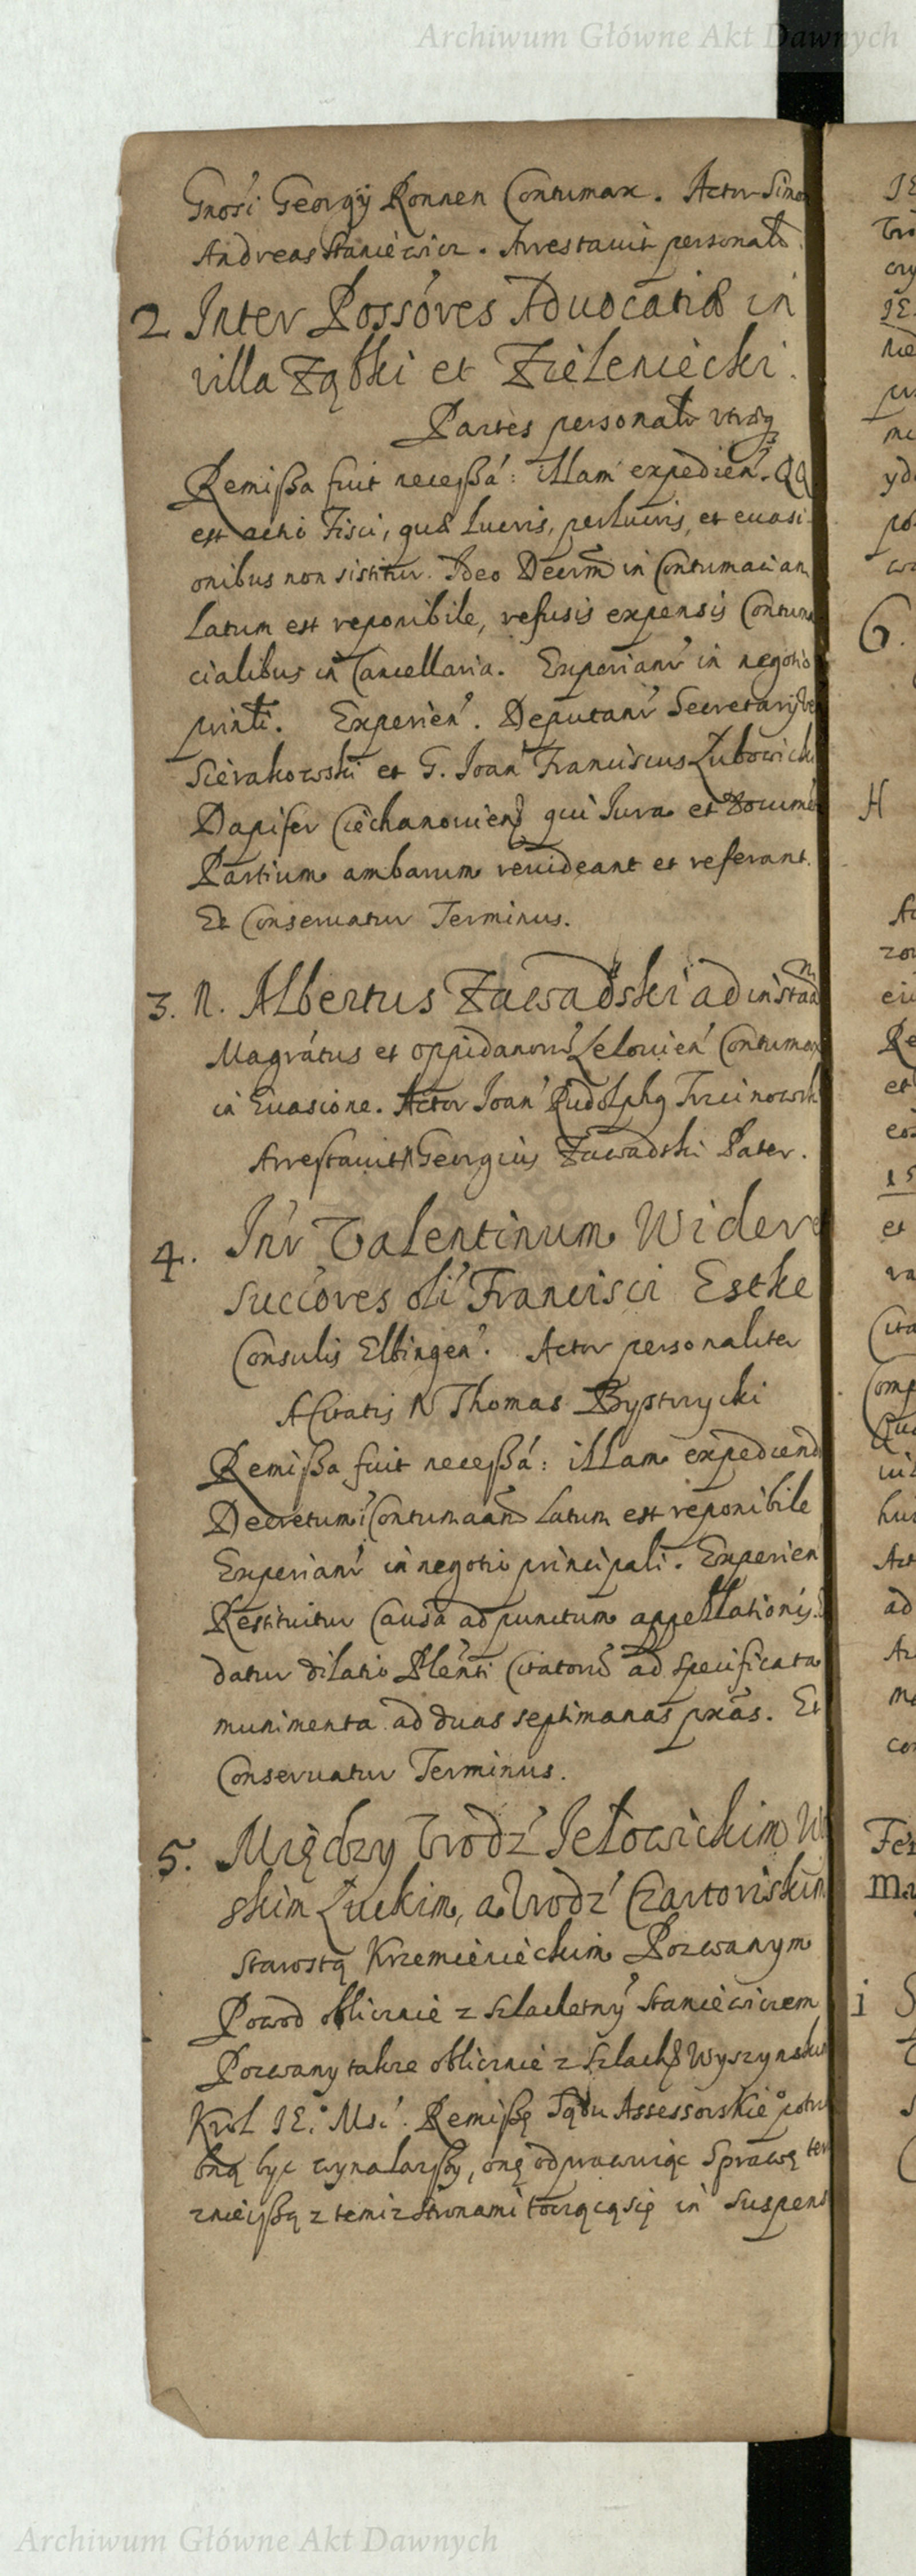 Archiwum Główne Akt Dawnych
Gnosi Georgÿ Ronnen Contumax. Actor Simon
Andreas Staniewicz. Arrestauit personalr
2 Inter Possóres Aduocatiæ in
villa Ząbki et Zieleniecki.
Partes personalr vtræq
Remißa fuit neceßá: illam expedien. QQ
est actio Fisci, quæ lucris, perlucris, et euasi-
onibus non sistitur. Ideo Decrm in Contumaciam
Latum est reponibile, refusis expensis Contuma
cialibus in Cancellaria. Experianr in negotio
prinli. Experien. Deputanr Secretarij
Sierakowski et G. Joan Franciscus Lubowicki
Dapifer Ciechanouien qui Iura et Docume
Partium ambarum reuideant et referant.
Et Conseruatur Terminus.
3. N. Albertus Zawadski ad instaã
Magrátus et oppidanorũ Lelouien Contumax
in Euasione. Actor Joan Rudolphg Trzcinowsk
Arrestauit N Georgius Zawadski Pater.
4. Inr Valentinum Widere
Succóres oli Francisci Estke
Consulis Elbingen. Actor personaliter
A Citatis N Thomas Bystrzycki
Remißa fuit neceßá: illam expediend
Decretum i Contumaciam Latum est reponibile
Experianr in negotio principali. Experien
Restituitur Causa ad punctum appellationis.
datur dilatio Plenti Citatorũ ad specificata
munimenta ad duas septimanas pxãs. Et
Conseruatur Terminus.
5. Między Vrodź Jełowickim W
skim Łuckim, a Vrodź Czartoriskim
Starostą Krzemienieckim Pozwanym
Powod oblicznie z Szlachetny Staniewiczem
Pozwany takze oblicznie z Szlach Wyszynskim
Krol JE.° Mśi. Remißę Sądu Assessorskie° potrze
bną byc wynalazßy, onę odprawuiąc Sprawę ter
znieyßą z temiz stronami toczącą się in Suspens
Archiwum Główne Akt Dawnych